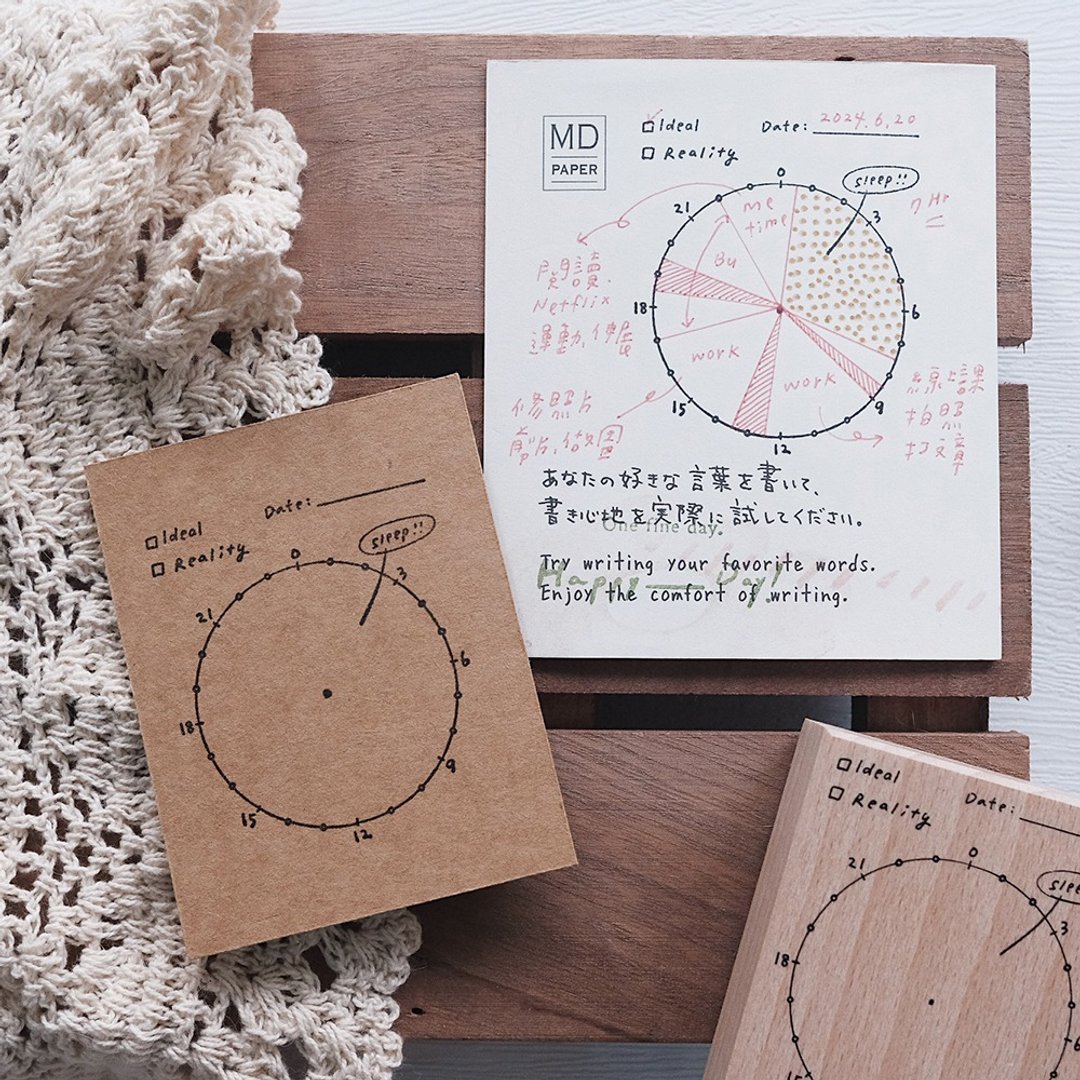 MD
PAPER
Ideal
Reality
Date: 2024.6.20
sleep!!
7 Hr
0
3
6
9
12
15
18
21
me
time
Bu
work
work
閱讀、
Netflix
運動、伸展
修照片
剪片、做圖
線上課
拍照
打文章
あなたの好きな言葉を書いて、
書き心地を実際に試してください。
One fine day.
Try writing your favorite words.
Happy Day!
Enjoy the comfort of writing.
Ideal
Reality
Date:
sleep!!
0
3
6
9
12
15
18
21
Ideal
Reality
Date:
0
3
6
15
18
21